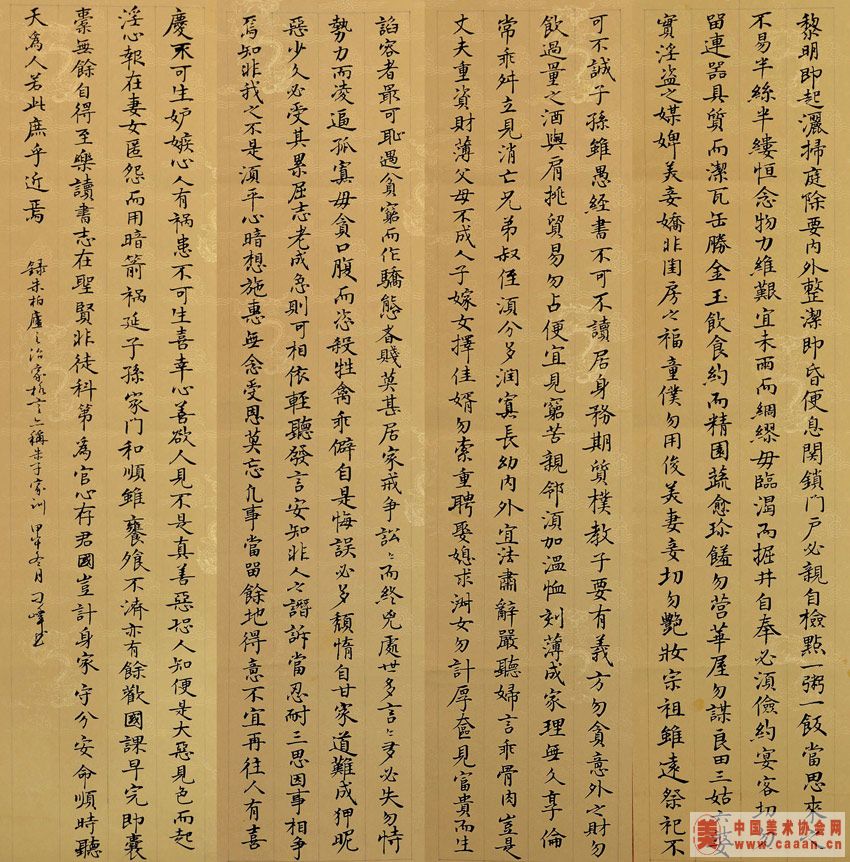 黎明即起灑掃庭除要內外整潔即昏便息関鎖門戶必親自檢點一粥一飯當思來
不易半絲半縷恒念物力維艱宜未雨而綢繆毋臨渴而掘井自奉必須儉約宴客切勿
留連器具質而潔瓦缶勝金玉飲食約而精園蔬愈珍饈勿營華屋勿謀良田三姑六婆
實淫盜之媒婢美妾嬌非閨房之福童僕勿用俊美妻妾切勿艷妝宗祖雖遠祭祀不
可不誠子孫雖愚經書不可不讀居身務期質樸教子要有義方勿貪意外之財勿
飲過量之酒與肩挑貿易勿占便宜見窮苦親鄰須加溫恤刻薄成家理無久享倫
常乖舛立見消亡兄弟叔侄須分多潤寡長幼內外宜法肅辭嚴聽婦言乖骨肉豈是
丈夫重資財薄父母不成人子嫁女擇佳婿勿索重聘娶媳求淑女勿計厚奩見富貴而生
諂容者最可恥遇貧窮而作驕態者賤莫甚居家戒爭訟〻而終兇處世多言〻多必失勿恃
勢力而凌逼孤寡毋貪口腹而恣殺牲禽乖僻自是悔誤必多頹惰自甘家道難成狎昵
惡少久必受其累屈志老成急則可相依輕聽發言安知非人之譖訴當忍耐三思因事相爭
焉知非我之不是須平心暗想施惠無念受恩莫忘凡事當留餘地得意不宜再往人有喜
慶不可生妒嫉心人有禍患不可生喜幸心善欲人見不是真善惡恐人知便是大惡見色而起
淫心報在妻女匿怨而用暗箭禍延子孫家門和順雖饔飧不濟亦有餘歡國課早完即囊
橐無餘自得至樂讀書志在聖賢非徒科第為官心存君國豈計身家守分安命順時聽
天為人若此庶乎近焉
錄朱柏廬之治家格言亦稱朱子家訓 甲午冬月
美 中国美术协会网
www.caaan.cn